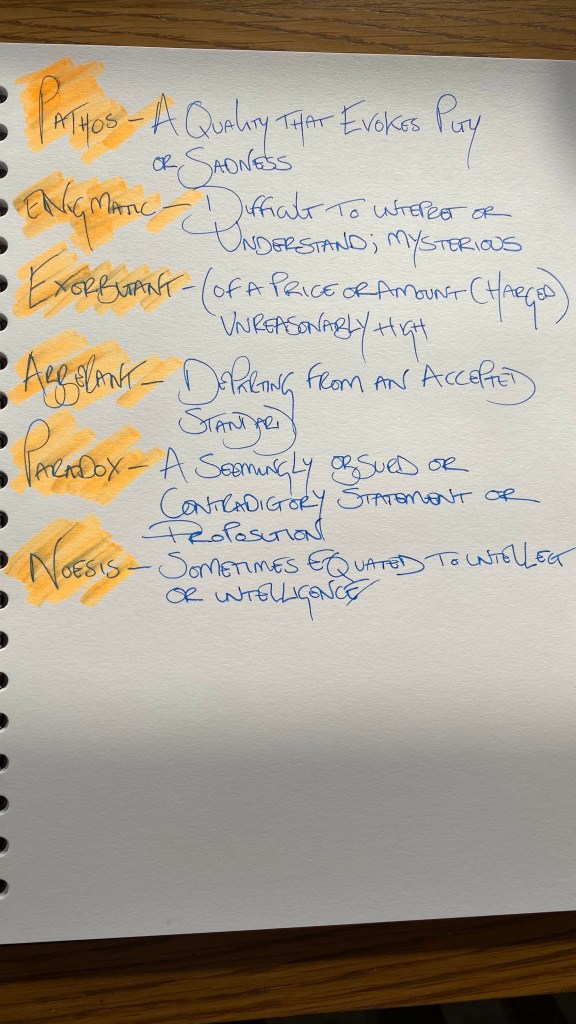 PATHOS - A QUALITY THAT EVOKES PITY
OR SADNESS
ENIGMATIC - DIFFICULT TO INTEPRET OR
UNDERSTAND; MYSTERIOUS
EXORBITANT - (OF A PRICE OR AMOUNT CHARGED)
UNREASONABLY HIGH
ABERRANT - DEPARTING FROM AN ACCEPTED
STANDARD
PARADOX - A SEEMINGLY ABSURD OR
CONTRADICTORY STATEMENT OR
PROPOSITION
NOESIS - SOMETIMES EQUATED TO INTELLECT
OR INTELLIGENCE